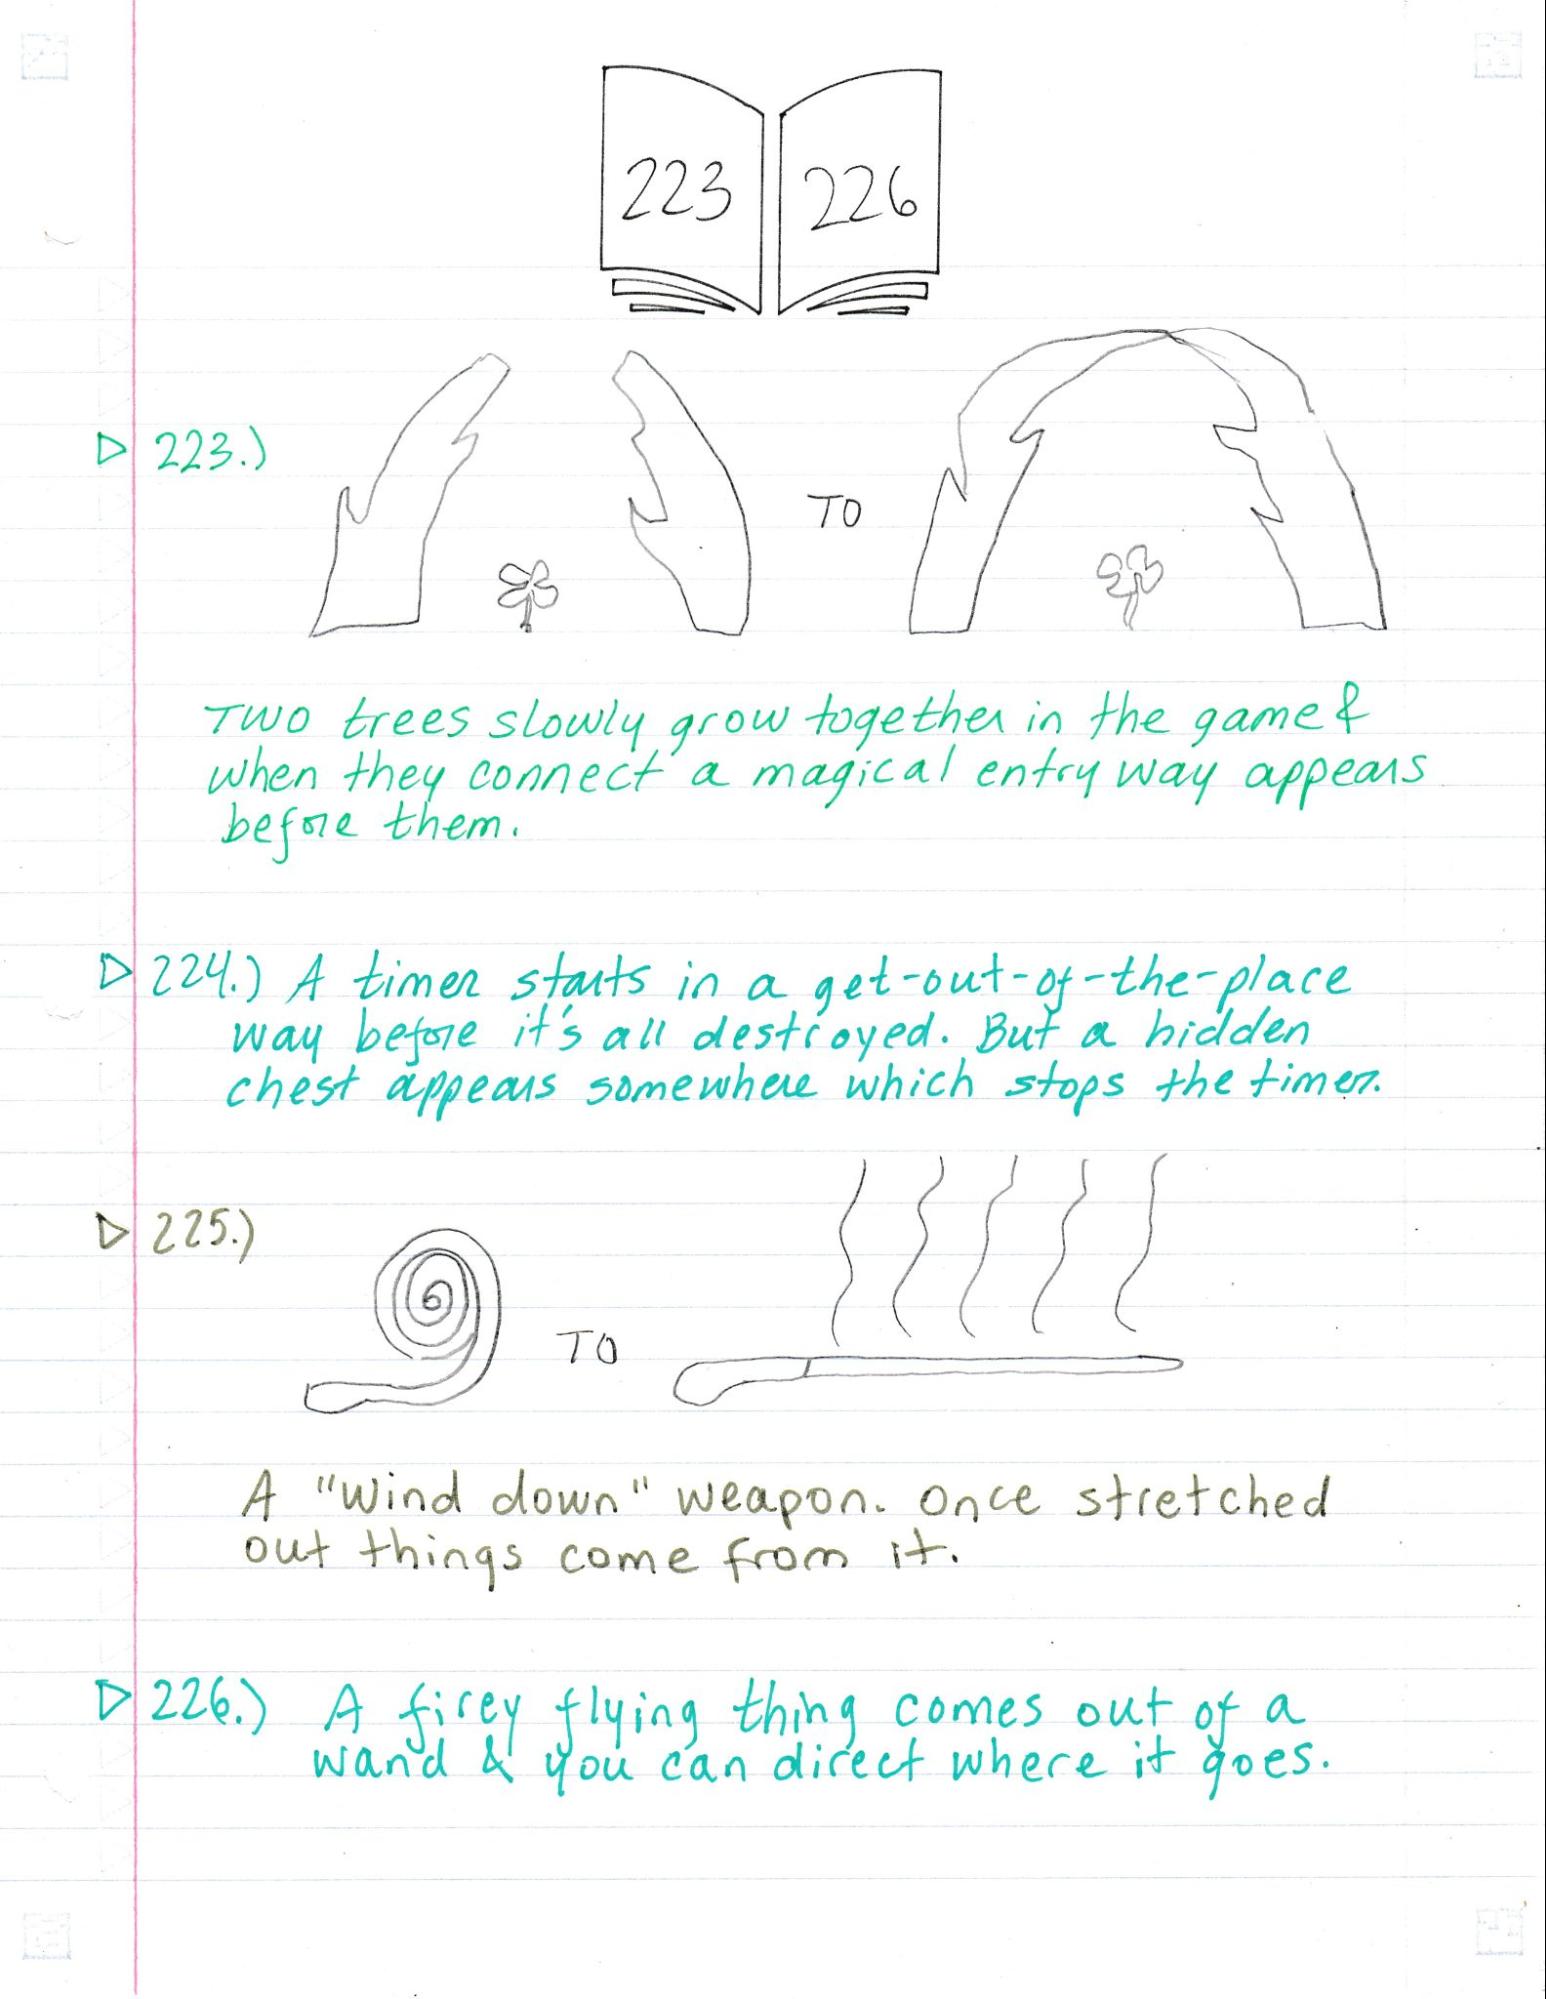 223 226
▷ 223.)
TO
Two trees slowly grow together in the game &
when they connect a magical entry way appears
before them.
▷ 224.) A timer starts in a get-out-of-the-place
way before it's all destroyed. But a hidden
chest appears somewhere which stops the timer.
▷ 225.)
TO
A "wind down" weapon. Once stretched
out things come from it.
▷ 226.) A firey flying thing comes out of a
wand & you can direct where it goes.